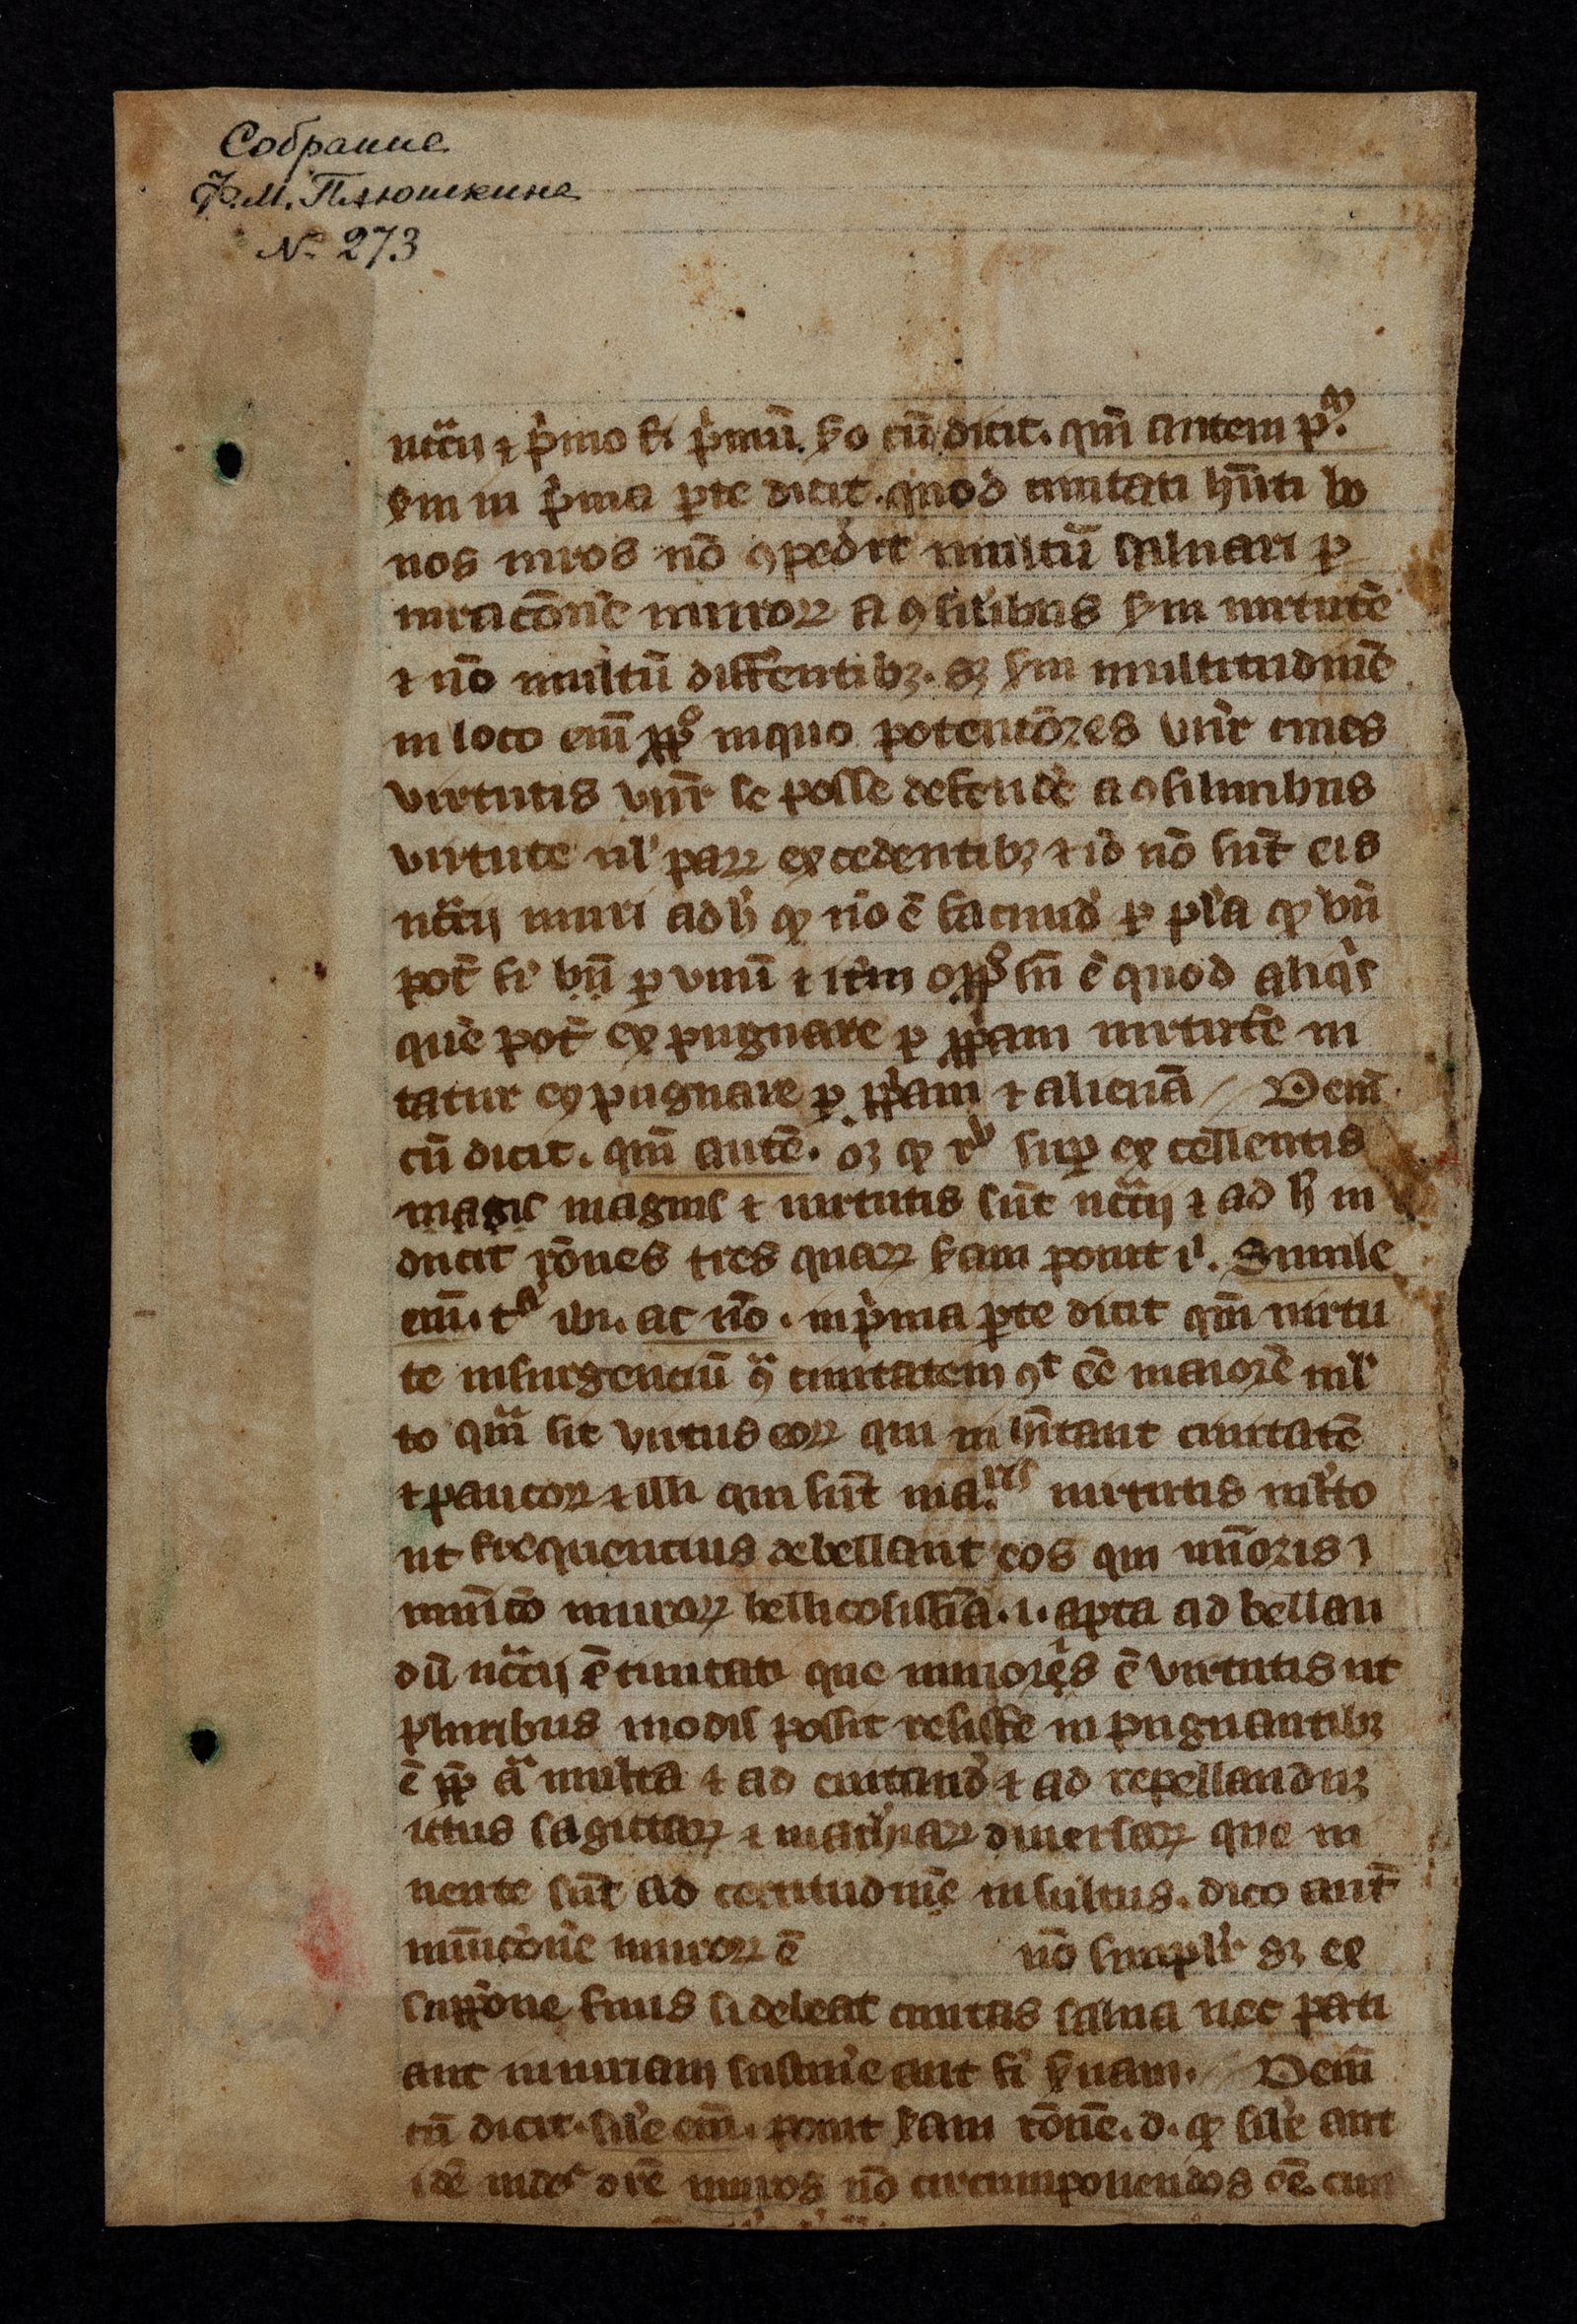 Собрание
Ф.М. Плюшкина
№ 273
nc̄cij ⁊ p̓mo fi p̓mū. s̓o cū dicit. qm̄ autem p.
s̓m in p̓ma p̱te dicit. quod ciuitati hn̄ti bo
nos uiros nō ꝯpedit multū saluari ꝑ
muroꝝ a ꝯsilibus s̓m uirtutē
⁊ nō multū diff̓entibꝫ. sꝫ s̓m multitudinē
in loco em̄ inquo potentiores cines
virtutis se posse defend̓e a ꝯsilimibus
virtute ul̓ paꝝ excedentibꝫ ⁊ iō nō sūt eis
nc̄cij muri ad h̓ ꝙ nō ē faciūd̓ ꝑ pl̓a ꝙ bn̄
pot̄ fi̓ bn̄ ꝑ vnū ⁊ itm̄ ē quod aliq̓s
quē pot̄ expugnare ꝑ pp̓am uirtutē ni
tatur expugnare ꝑ pp̓am ⁊ alienā // Dein̄
cū dicit. qm̄ autē. oꝫ ꝙ suꝑ excellentis
magis magnis ⁊ uirtutis sūt nc̄cij ⁊ ad h̓ in
ducit rōnes tres quaꝝ s̓am ponit iͥ. Simile
em̄. ibi. ac nō. in p̓ma p̱te dicit qm̄ uirtu
te insurgenciū ꝯͣ ciuitatem ꝯt ēē maiorē ml̓
to qm̄ sit virtus eoꝝ qui inhītant ciuitatē
⁊ paucoꝝ ⁊ illi qui sūt ma.ris uirtutis ml̓to
ut frequencius debellant eos qui mīoris ⁊
municō muroꝝ bellicosissīa. i. apta ad bellan
dū nc̄cij ē ciuitati que minores ē virtutis ut
pluribus modis possit resist̓e inpugnantibꝫ
ē multa ⁊ ad euitand̓ ⁊ ad repellanduꝫ
ictus sagittaꝝ ⁊ machinaꝝ diuersaꝝ que in
uente sūt ad certitudinē insultus. dico aut̄
municōne muroꝝ ē nō simpl̓r sꝫ ex
supp̓one finis si debeat ciuitas salua nec pati
aut iniuriam sustin̓e aut fi̓ s̓uam. // Dein̄
cū dicit. sil̓e em̄. ponit s̓am rōnē. d. ꝙ sil̓e aut
idē dr̄e muros nō circumponendos ēē. ciui